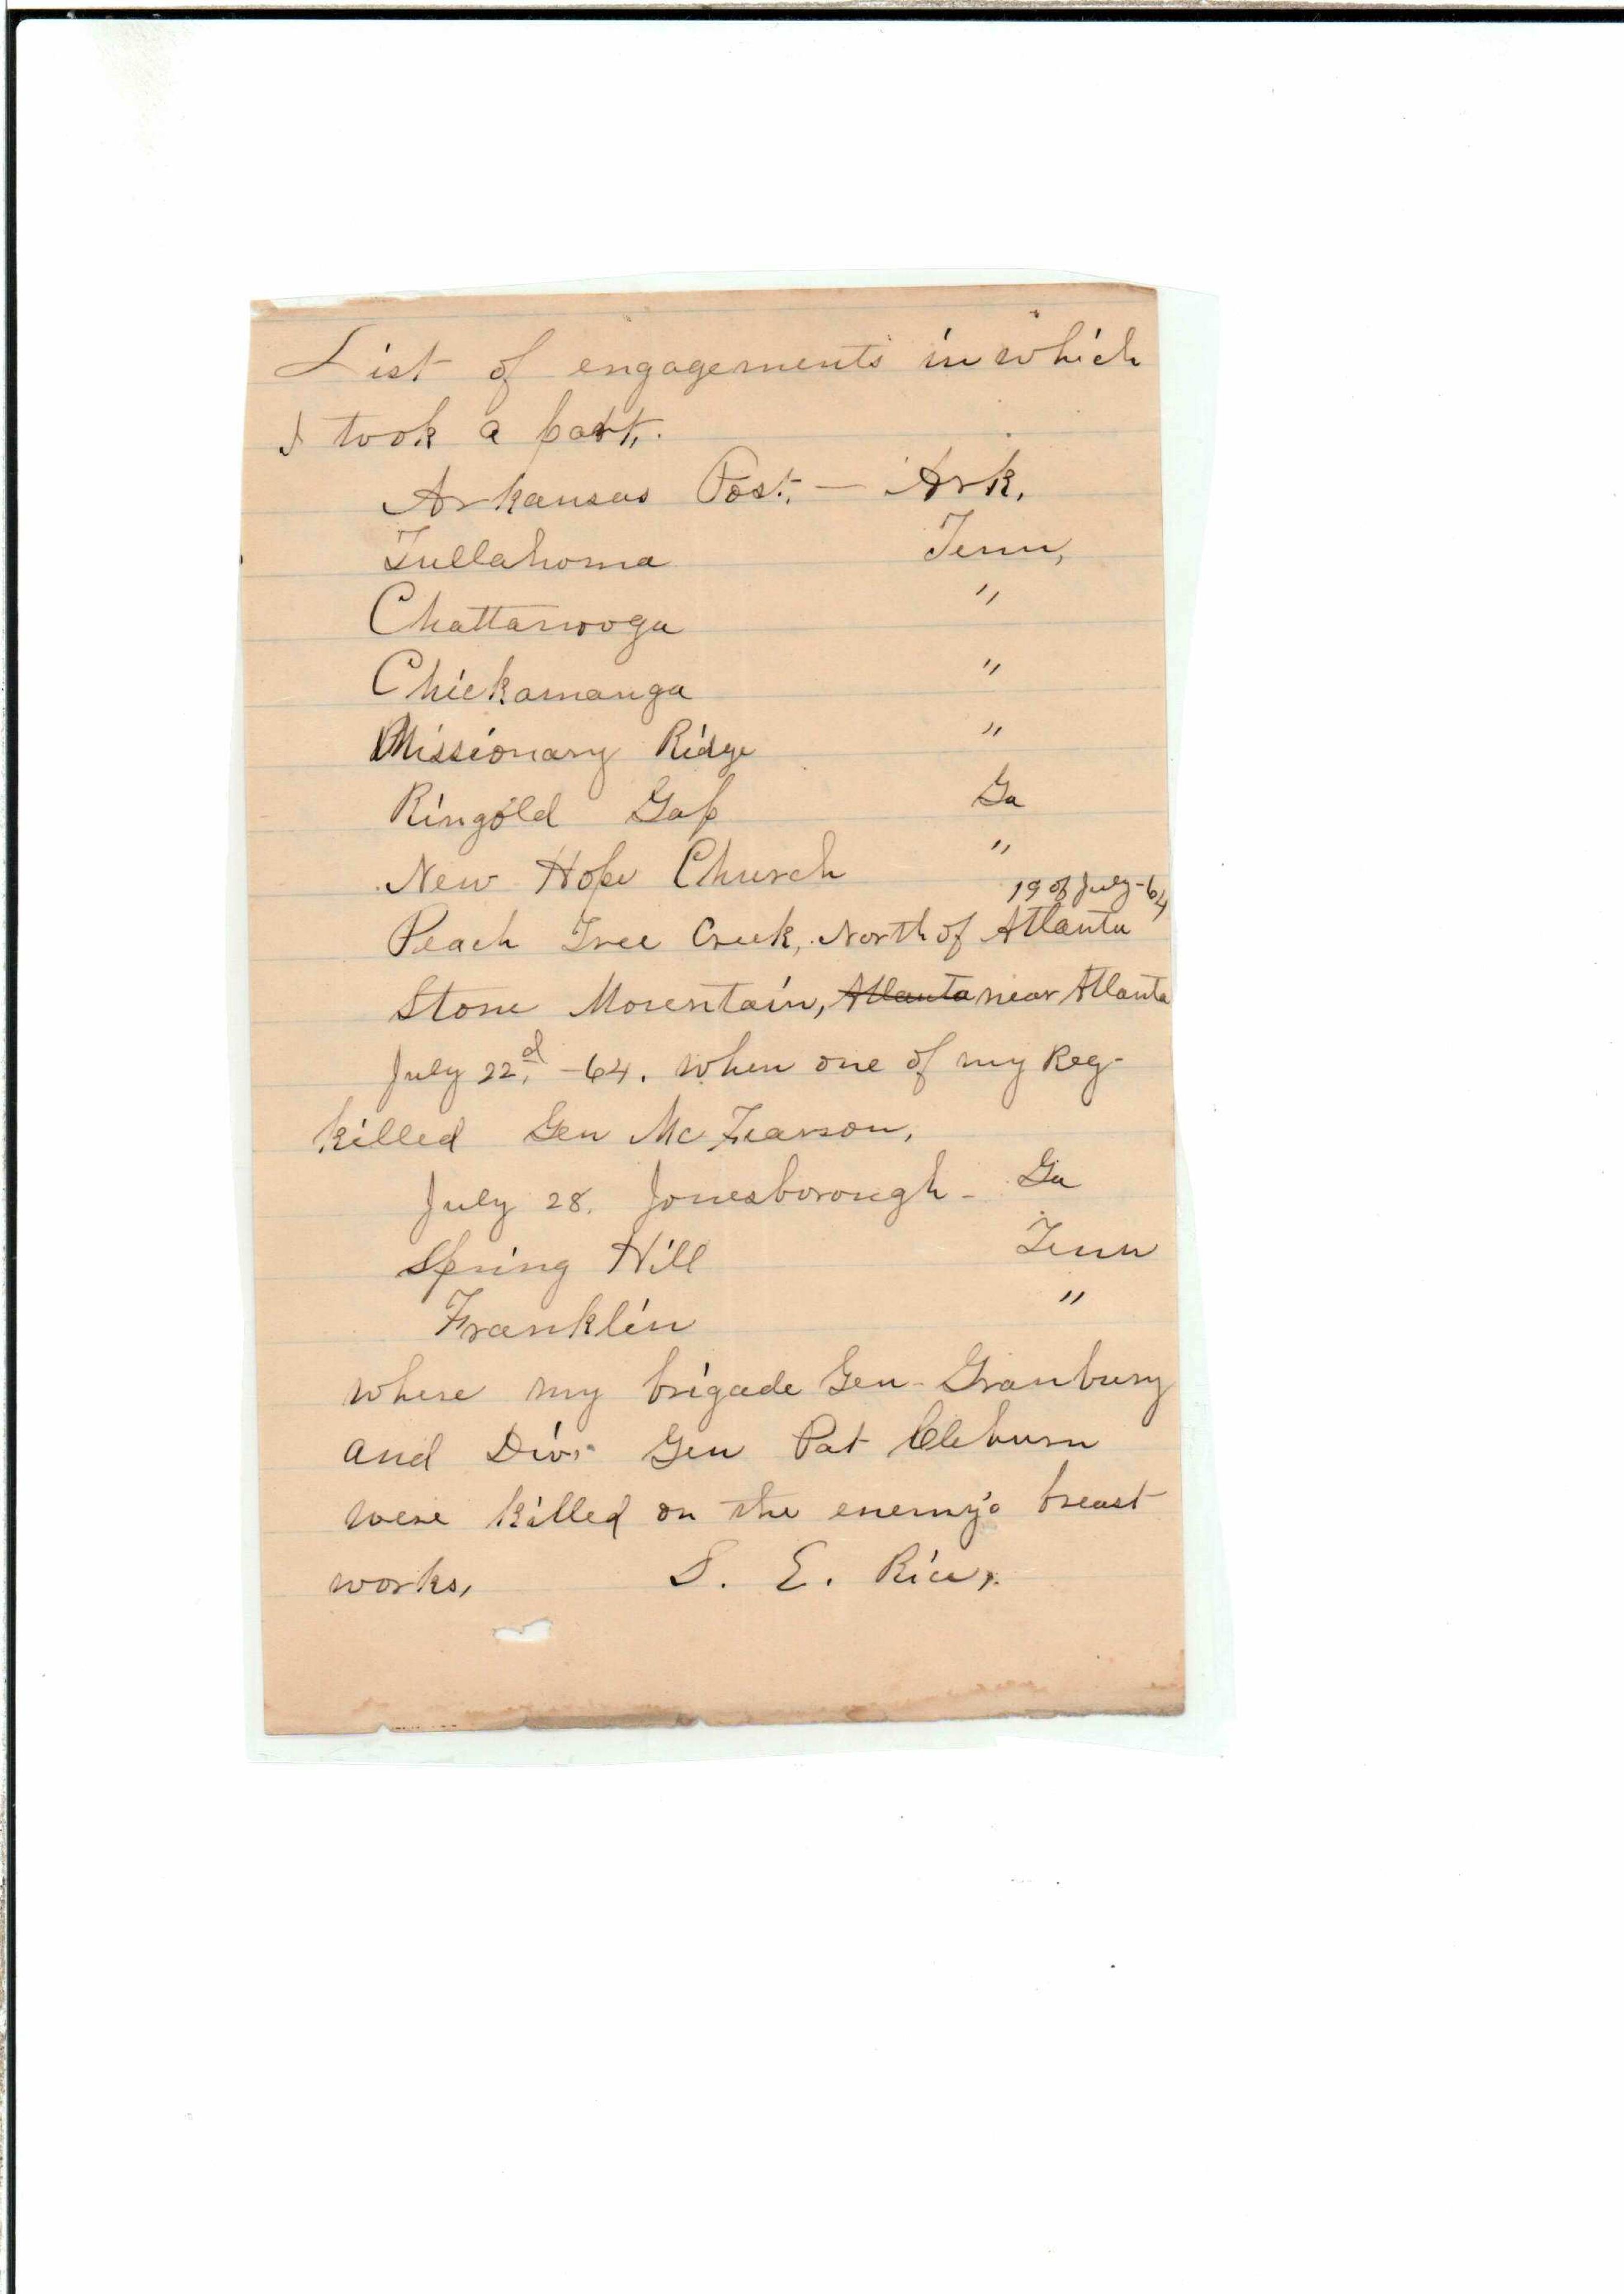 List of engagements in which
I took a part.
Arkansas Post. — Ark.
Tullahoma Tenn,
Chattanooga "
Chickamauga "
Missionary Ridge "
Ringold Gap Ga
New Hope Church "
19 of July-64
Peach Tree Creek, North of Atlanta
Stone Mountain, Atlanta near Atlanta
July 22d, -64. when one of my Reg-
killed Gen McFearson,
July 28. Jonesborough - Ga
Spring Hill Tenn
Franklin "
where my brigade Gen- Granbury
and Div. Gen Pat Cleburn
were killed on the enemy's breast
works, S. E. Rice,